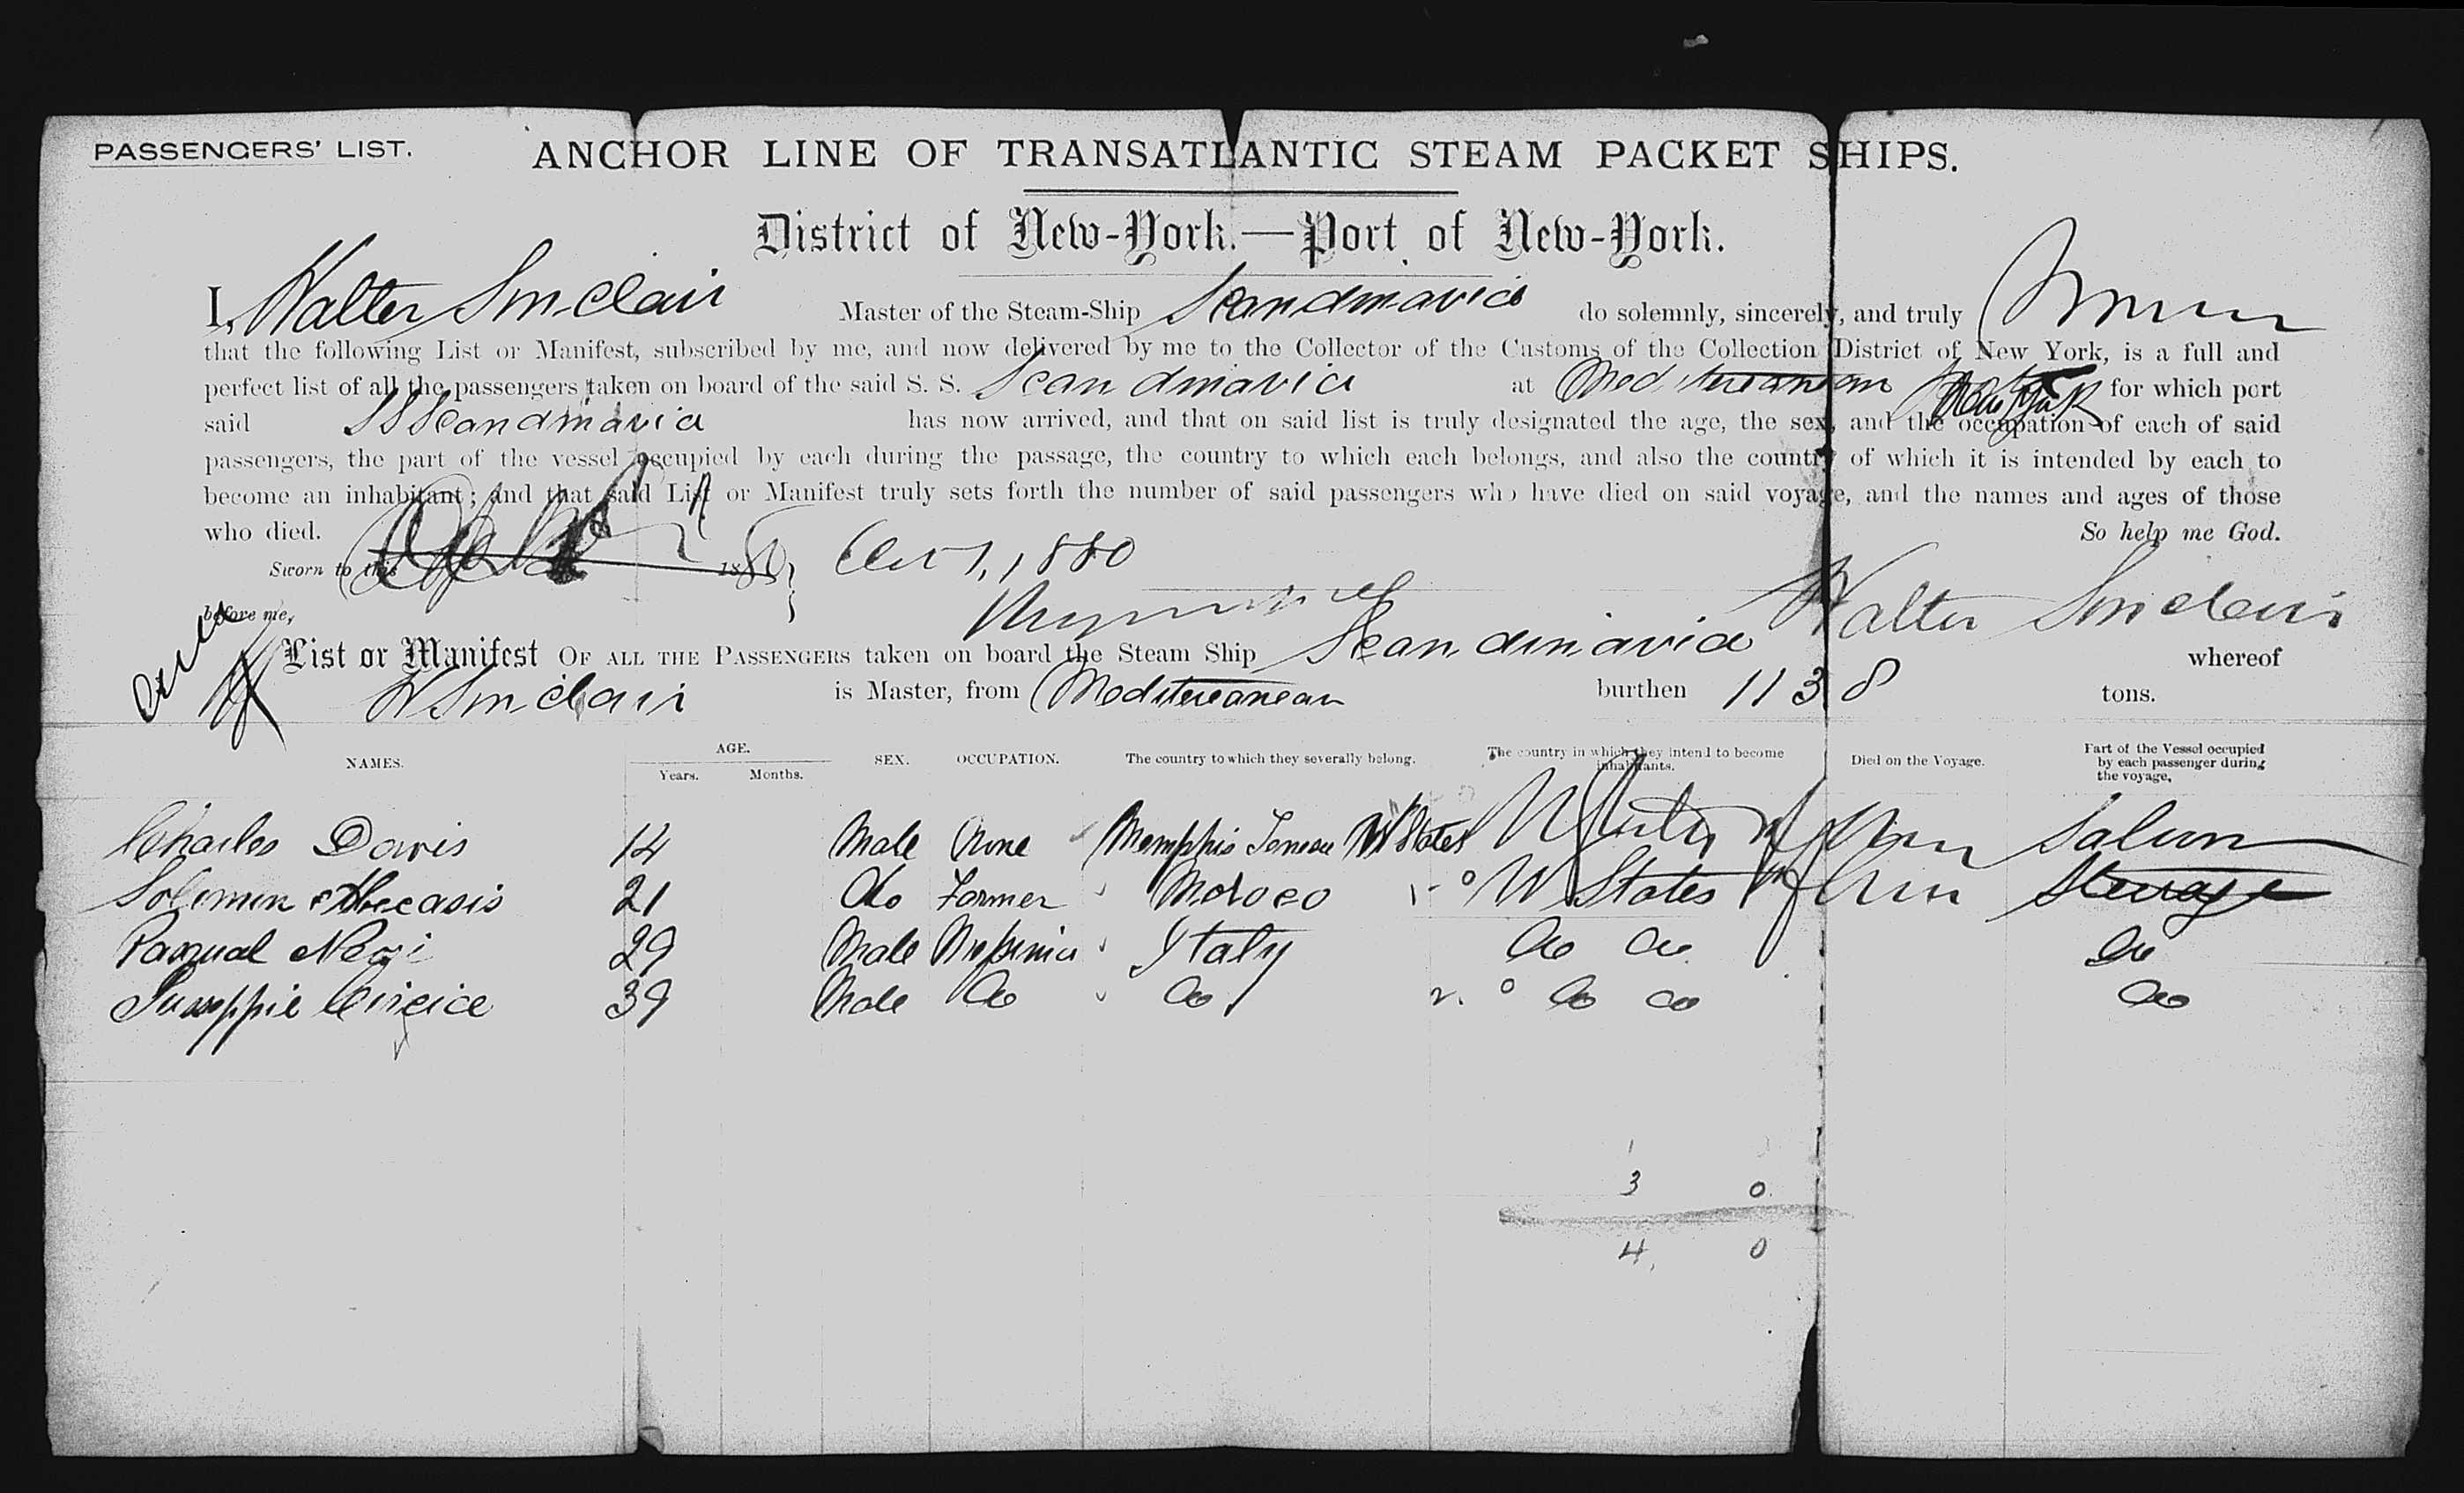 PASSENGERS' LIST. ANCHOR LINE OF TRANSATLANTIC STEAM PACKET SHIPS.
District of New-York.—Port of New-York.
I, Walter Sinclair Master of the Steam-Ship Scandinavia do solemnly, sincerely, and truly
that the following List or Manifest, subscribed by me, and now delivered by me to the Collector of the Customs of the Collection District of New York, is a full and
perfect list of all the passengers taken on board of the said S. S. Scandinavia at Mediterranean for which port
said SS Scandinavia has now arrived, and that on said list is truly designated the age, the sex, and the occupation of each of said
passengers, the part of the vessel occupied by each during the passage, the country to which each belongs, and also the country of which it is intended by each to
become an inhabitant; and that said List or Manifest truly sets forth the number of said passengers who have died on said voyage, and the names and ages of those
who died. So help me God.
Sworn to this 1880 1, 1880
before me, Walter Sinclair
List or Manifest OF ALL THE PASSENGERS taken on board the Steam Ship Scandinavia whereof
W Sinclair is Master, from Mediterranean burthen 1138 tons.
NAMES. AGE. Years. Months. SEX. OCCUPATION. The country to which they severally belong. The country in which they intend to become inhabitants. Died on the Voyage. Part of the Vessel occupied by each passenger during the voyage.
Charles Davis 12 Male None Memphis U States Saloon
Solomon Abecasis 21 Do Farmer Moroco U States Steerage
Pasqual 29 Male Italy Do Do Do
39 Male Do Do Do Do Do
3 0
4 0